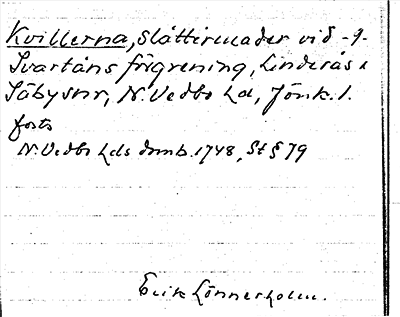 Kvillerna, slåttermader vid -g-
Svartåns förgrening, Linderås o
Säby snr, N. Vedbo hd, Jönk. l.
forts
N. Vedbo hds domb. 1748, St § 79
Erik Lönnerholm.